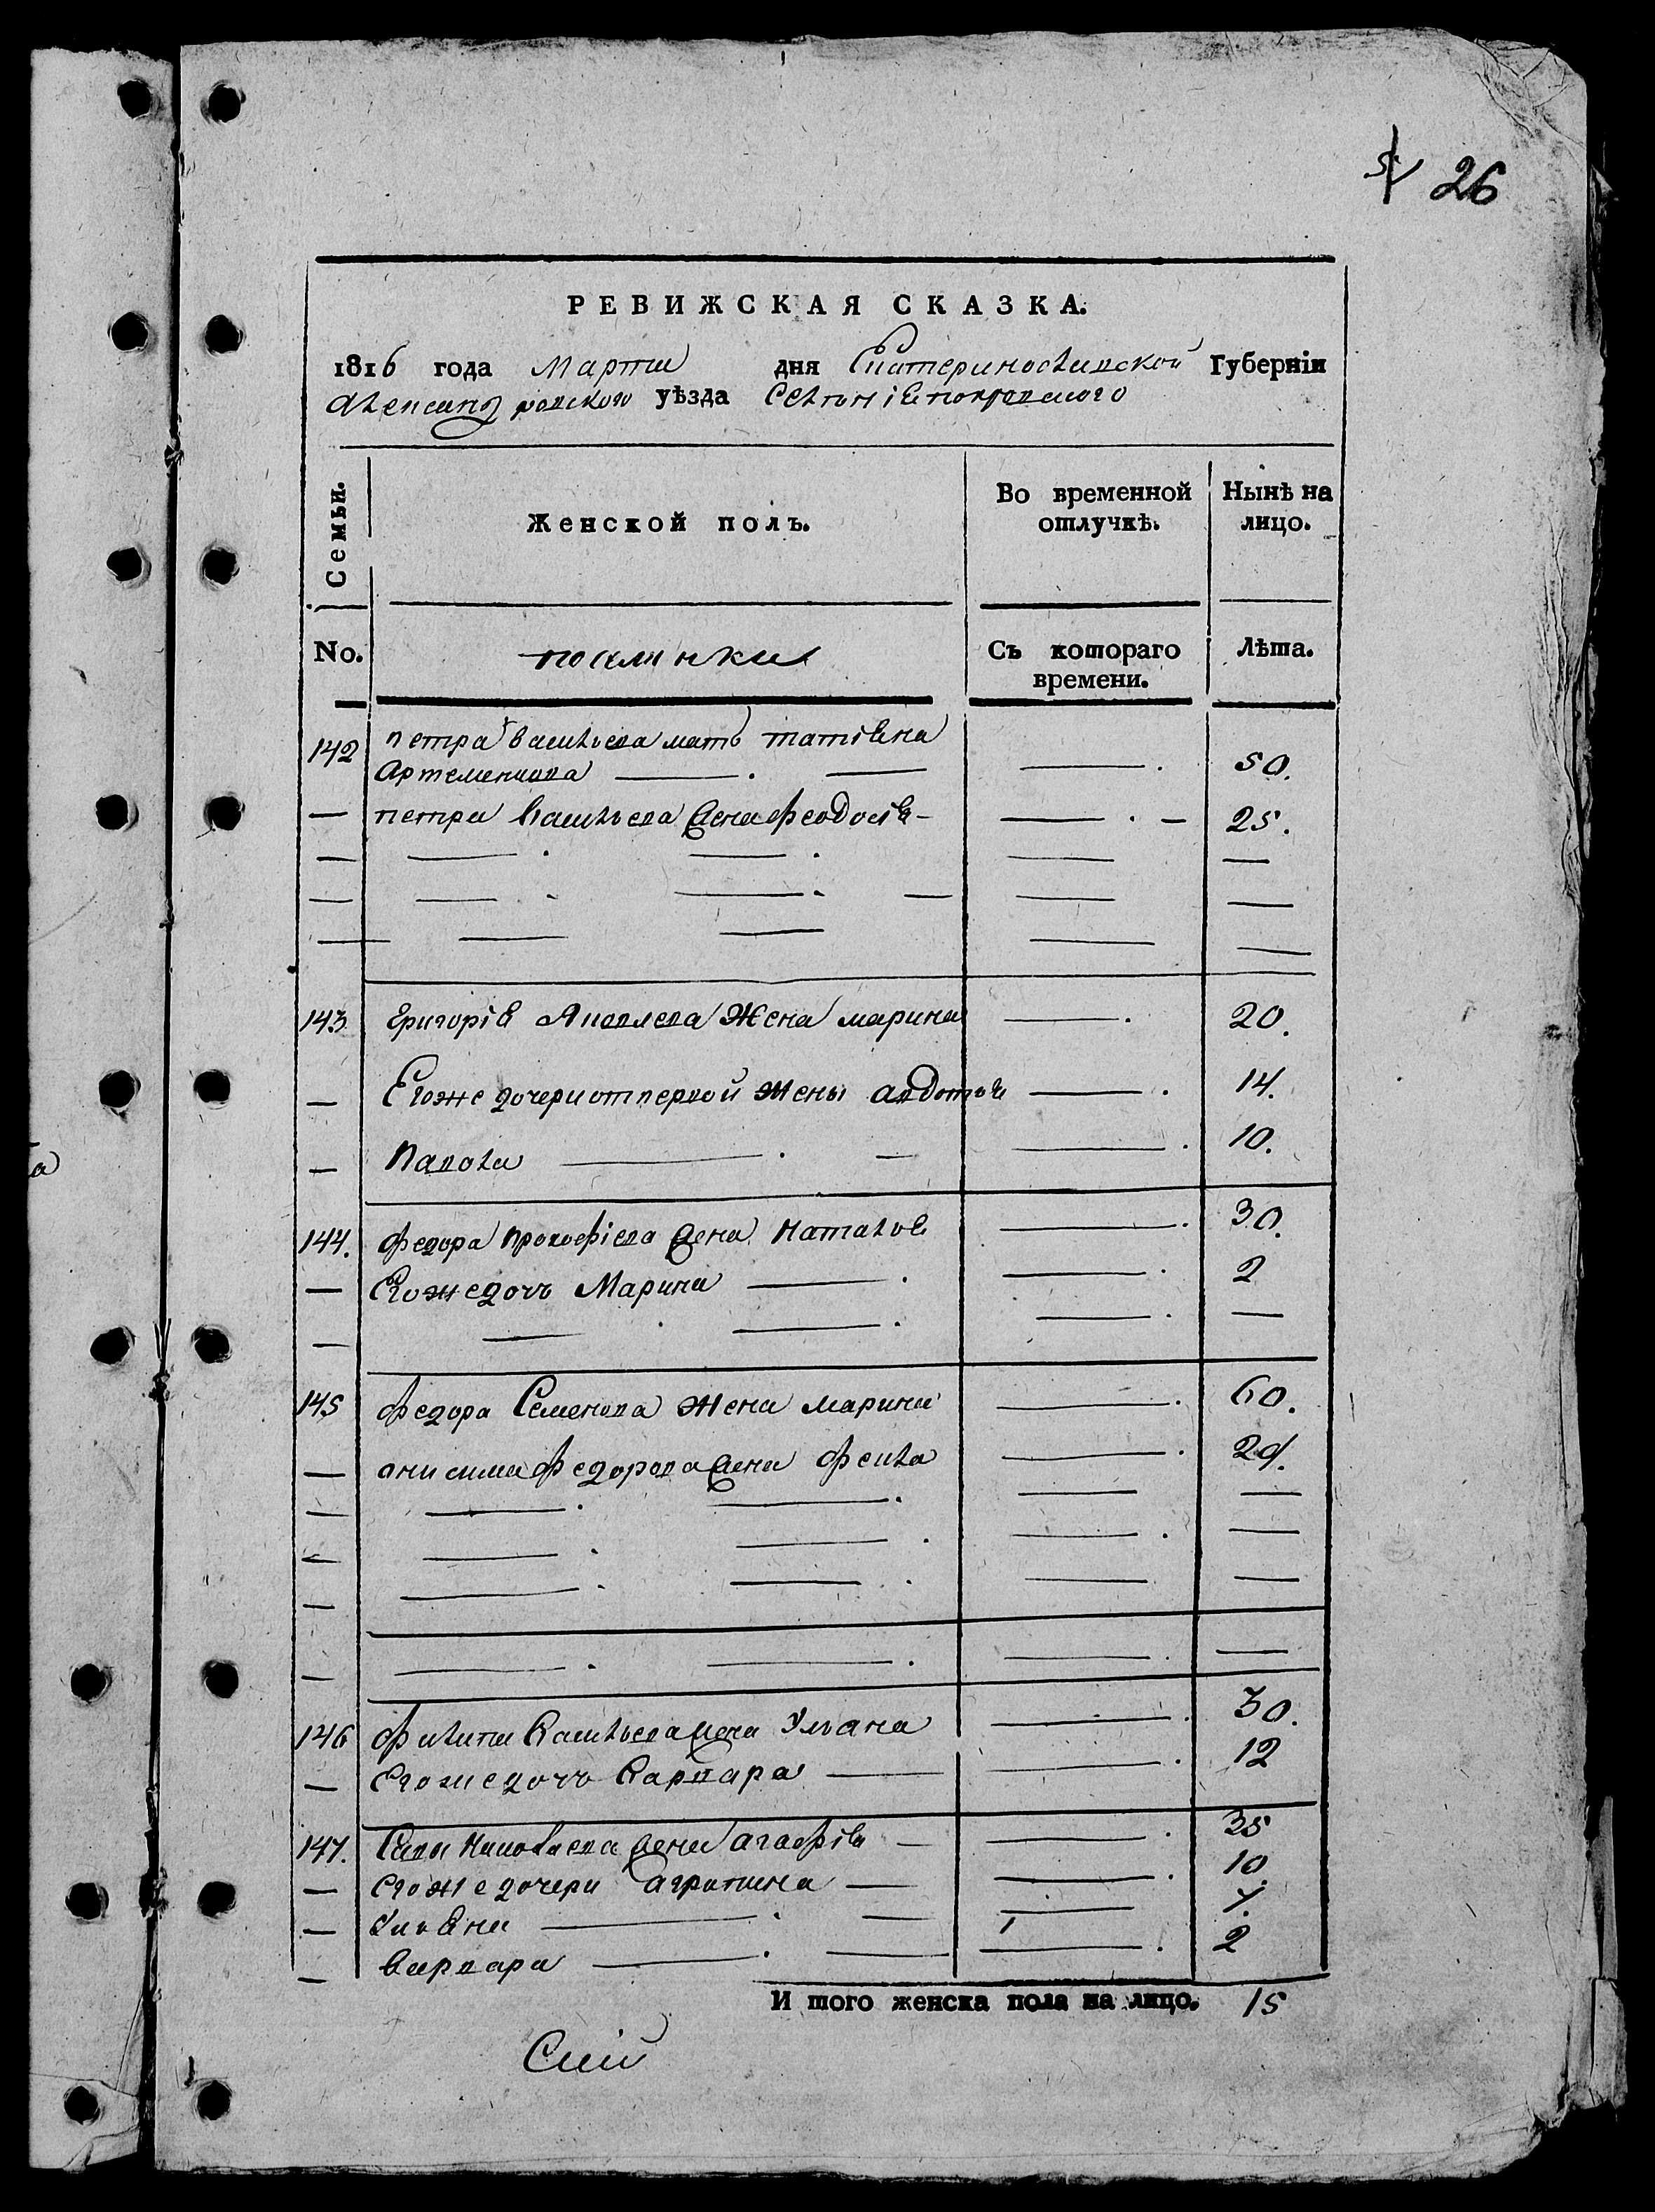 26
РЕВИЖСКАЯ СКАЗКА.
1816 года Марта дня Екатеринославской Губерніи
Александровского уѣзда Селѣнія покровского
Семьи.
Женской полъ.
Во временной отлучкѣ.
Нынѣ на лицо.
No.
поселянки
Съ котораго времени.
Лѣта.
142 петра васильева мать татіяна
Артеменкова 50.
петра васильева жена феодосія 25.
143 григорія Яковлева жена марина 20.
Егоже дочери от первой жены авдотья 14.
Павола 10.
144. федора прокофіева жена Наталья 30.
Егоже дочь Марина 2
145 федора Семенова жена марина 60.
анисима федорова жена фекла 24.
146 филипа васильева жена Ульана 30.
Егоже дочь варвара 12
147. Савы Николаева жена агафія 35
Егоже дочери агрипина 10.
Ульяна 7.
варвара 2
И того женска пола на лицо. 15
Сіи